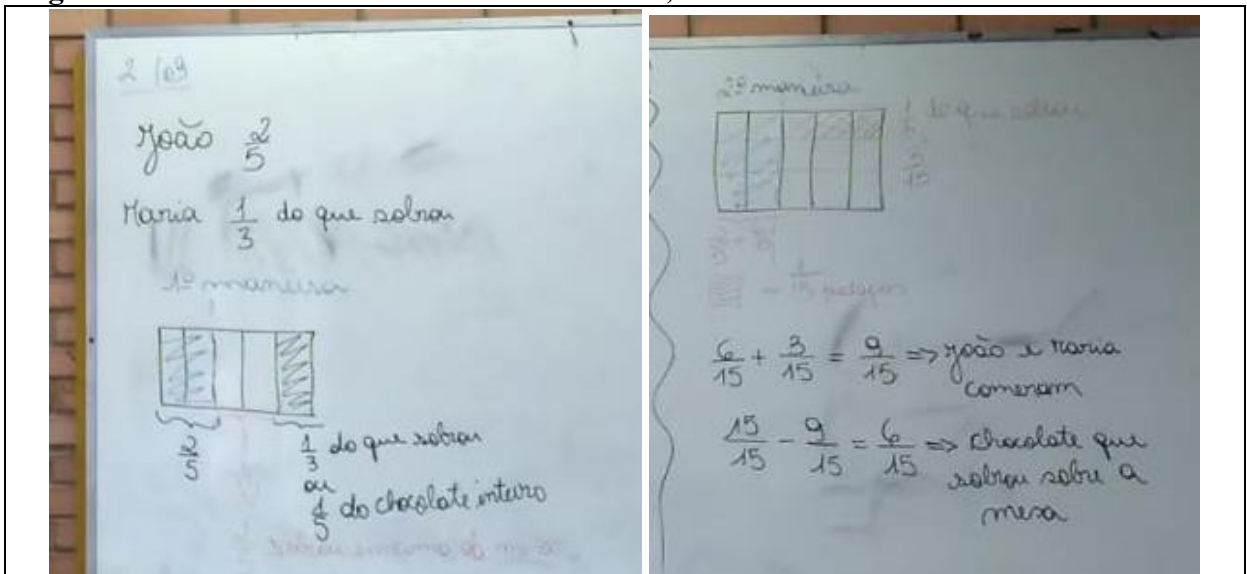 2/09
João 2/5
Maria 1/3 do que sobrou
1º maneira
2/5
1/3 do que sobrou
ou
1/5 do chocolate inteiro
2º maneira
do que sobrou
3/15
1/15
6/15 + 3/15 = 9/15 => João e Maria
comeram
15/15 - 9/15 = 6/15 => chocolate que
sobrou sobre a
mesa